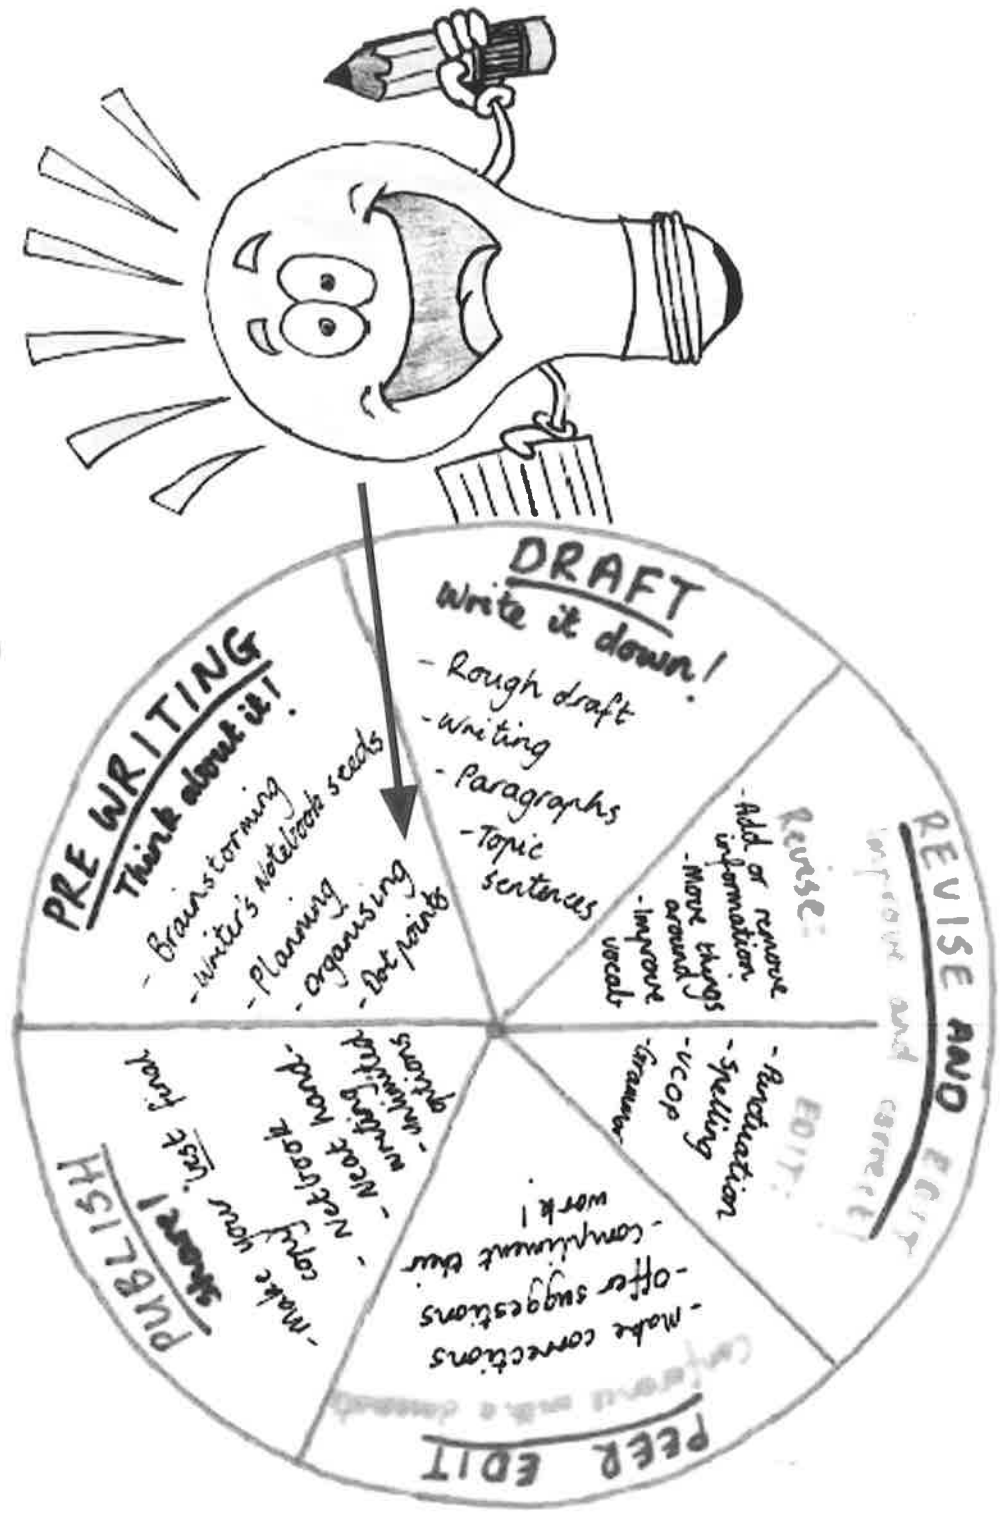 PRE WRITING
Think about it!
- Brainstorming
- Writer's Notebook seeds
- Planning
- organising
- Dot points
DRAFT
Write it down!
- Rough draft
- Writing
- Paragraphs
- Topic
sentences
REVISE AND EDIT
improve and correct
Revise:
- Add or remove
information
- Move things
around
- Improve
vocab
EDIT:
- Punctuation
- Spelling
- VCOP
- Grammar
PEER EDIT
Conference with a
- Make corrections
- Offer suggestions
- Compliment their
work!
PUBLISH
Share!
- Make your best final
copy
- Netbook
- Neat hand-
writing
- Unlimited
options